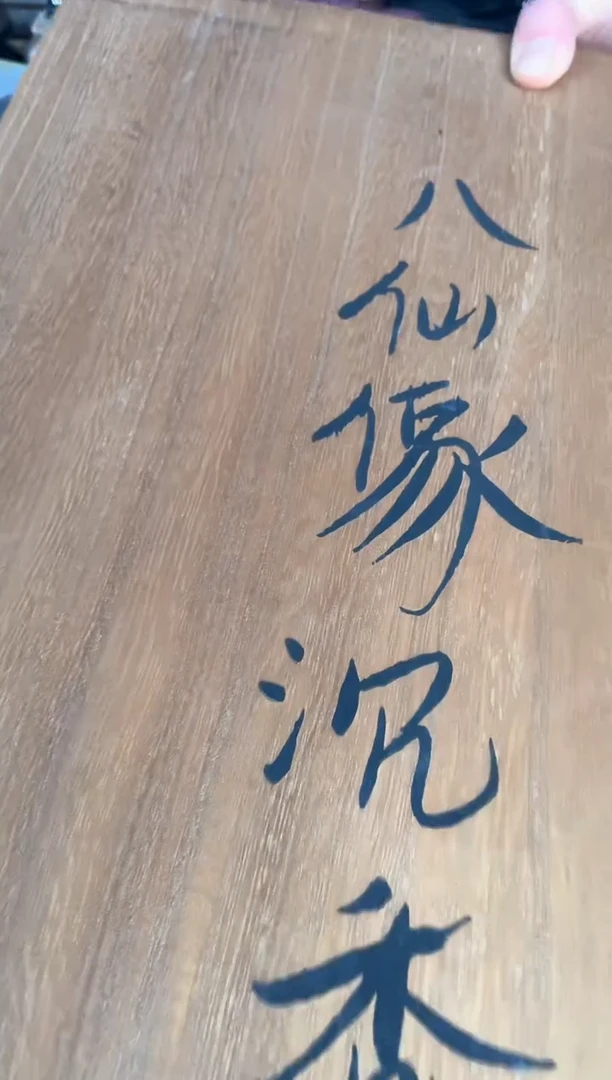 八仙像沉香